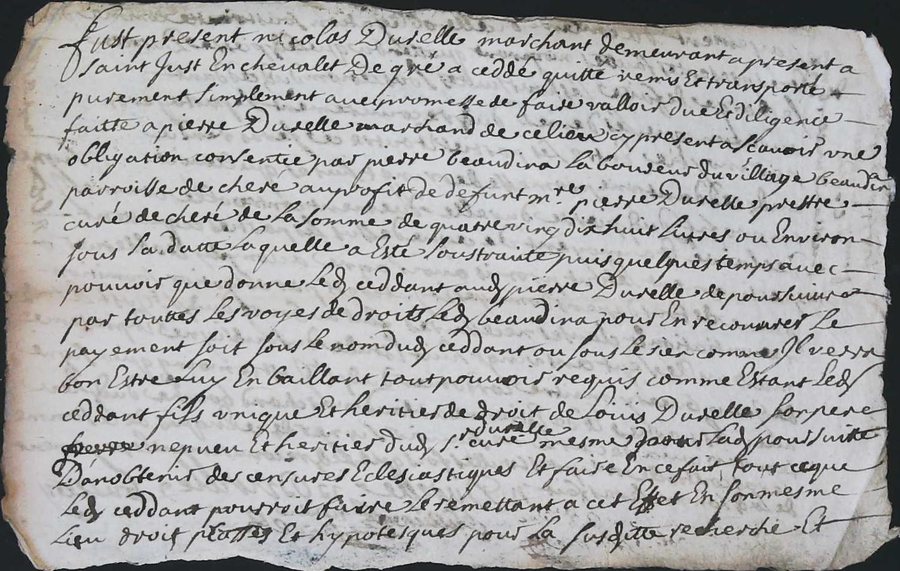 fust present nicolas Durelle marchant demeurant apresent a
saint Just En chevalet De gré a ceddé quitte remis Et transporté
purement simplement avec promesse de faire valloir due Et diligence
faitte a pierre Durelle marchand de ce lieu cy present a scavoir une
obligation consentie par pierre beaudina laboureur du village beaudin
parroisse de cheré au profit de defunt mre pierre Durelle prestre
curé de cheré de la somme de quatre vingt dix huit livres ou Environ
sous la datte laquelle a Esté soustraite puis quelques temps avec
pouvoir que donne led ceddant aud pierre Durelle de poursuivre
par touttes les voyes de droits led beaudina pour En recouvrer le
payement soit sous le nom dud ceddant ou sous le sien comme Jl verra
bon Estre luy En baillant tout pouvoir requis comme Estant led
ceddant fils unique Et heritier de droit de Louis Durelle son pere
nepveu Et heritier dud sr curé durelle mesme dans lad poursuitte
D'en obtenir des censures Eclesiastiques Et faire En ce fait tout ce que
led ceddant pourroit faire le remettant a cet Effet En son mesme
lieu droit places Et hypotesques pour la susditte recherche Et